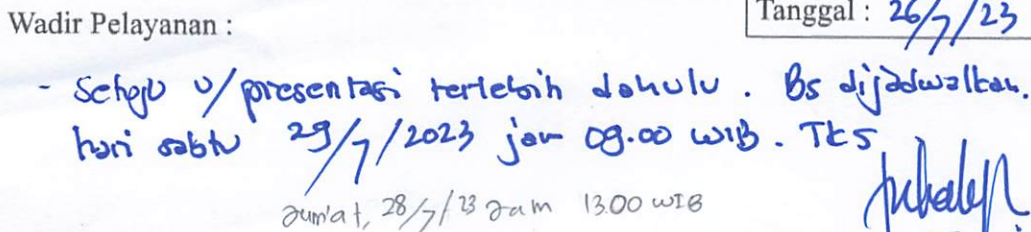 Wadir Pelayanan :
Tanggal : 26/7/23
- Setuju u/ presentasi terlebih dahulu. Bs dijadwalkan.
hari sabtu 29/7/2023 jam 09.00 WIB. Tks
Jum'at, 28/7/23 Jam 13.00 WIB